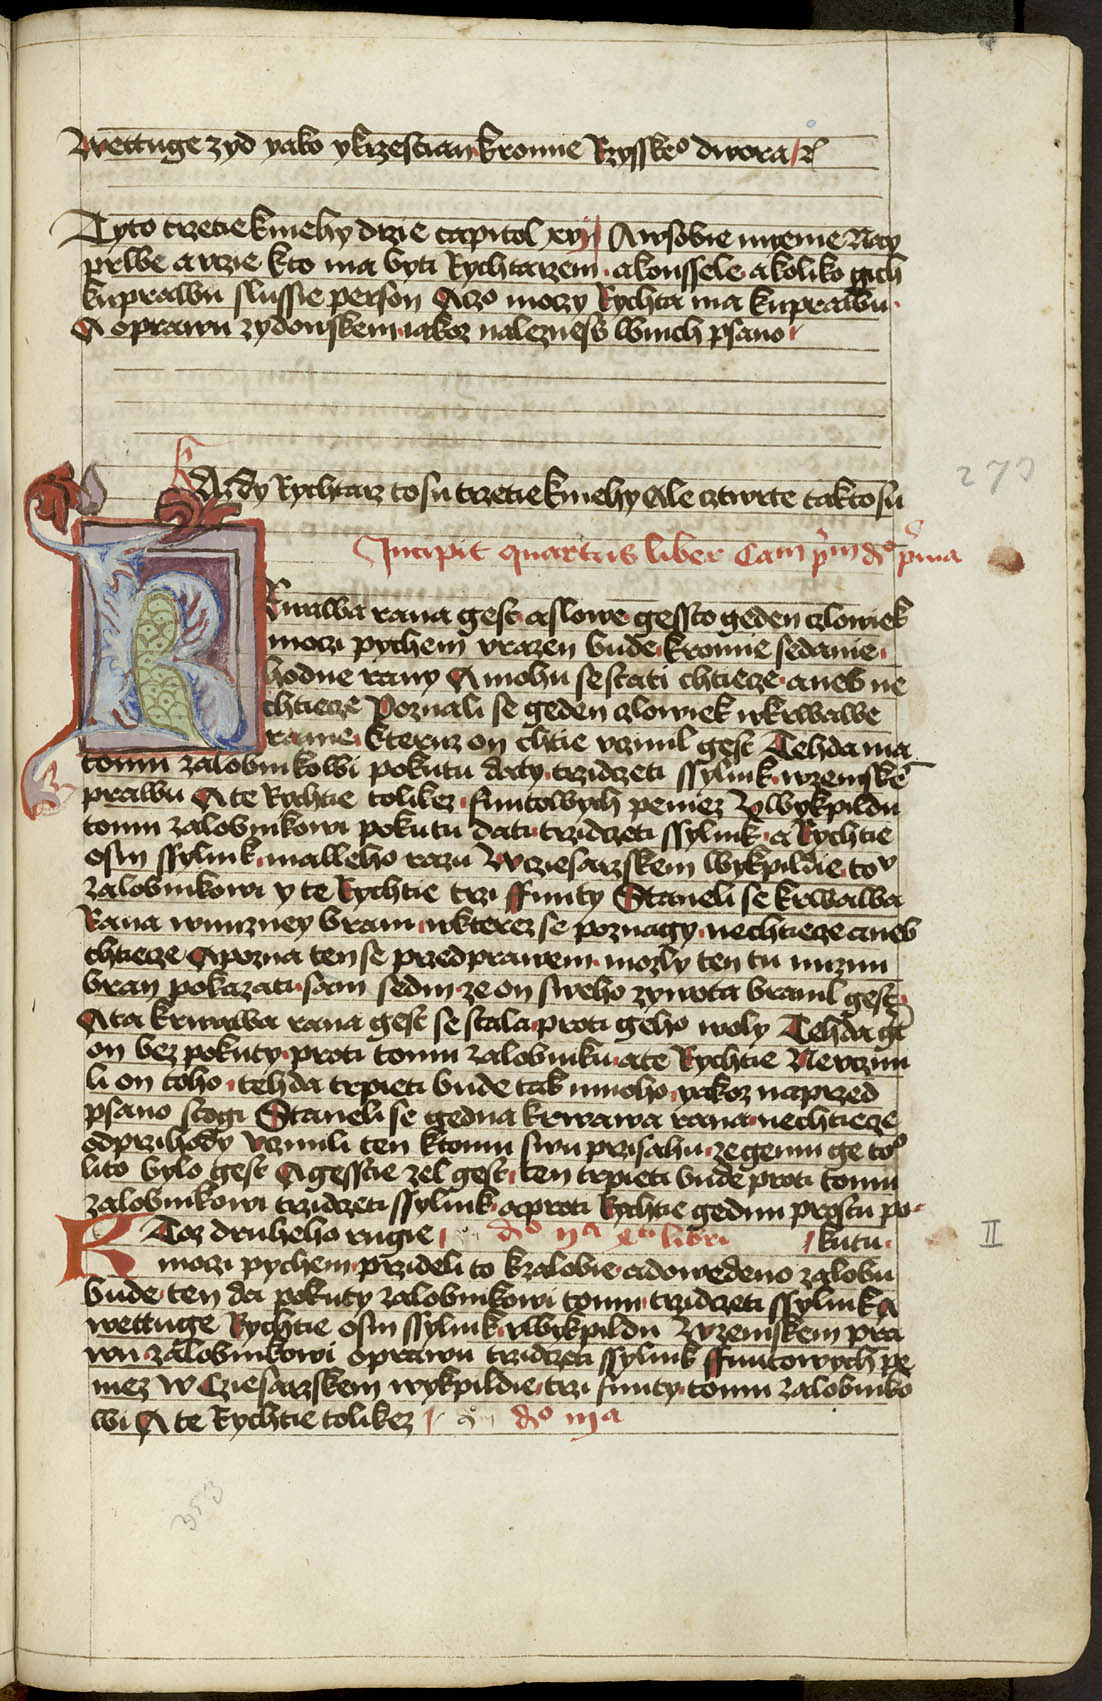 wettuge zyd yako y krzestian kromie Rzysske° dwora
Tyto trzetie kniehy drzie capitol xvij A w sobie mgenie Nay
prwe a wzie kto ma byti Rychtarzem a konssele a koliko gich
kuprawu slussie person A czo moczy Rychta ma kuprawu
A oprawu zydowskem iakoz nalezness w nich psano
Kazdy Rychtarz to su trzetie kniehy Ale cztwrte takto su
Incipit quartus liber Cam pm do pma
270
Krwawa rana gest a slowe gessto geden czlowiek
moczi pychem vrazen bude kromie sedanie
hodne rany A mohu se stati chtiecze aneb ne
chtiecze Poznali se geden czlowiek w krwawe
ranie kteruz on chtie vczinil gest Tehda ma
tomu zalobnikowi pokutu daty trzidczeti ssylink w zemske
prawu A te Rychtie tolikez funtowych peniez W wykpildu
tomu zalobnikowi pokutu dati trzidczeti ssylink a Rychtie
osm ssylink malleho razu W cziesarzskem wykpildie tov
zalobnikowi y te Rychtie trzi ffunty Staneli se krwawa
Rana w nuzney brani w kterez se poznagy nechtiecze aneb
chtiecze A pozna ten se przed prawem mozly ten tu nuznu
bran pokazati sam sedm ze on sweho zywota branil gest
A ta krwawa rana gest se stala proti geho woly Tehda gt
on bez pokuty proti tomu zalobniku a te Rychtie Nevczini
li on toho tehda trpieti bude tak mnoho yakoz naprzed
psano stogi Staneli se gedna krwawa rana nechtiecze
od przihody vczinili ten k tomu swu przisahu ze gemu ge to°
lito bylo gest A gesstie zel gest ten trpieti bude proti tomu
zalobnikowi trzidczeti ssylink a proti Rychtie gednu prostu po
kutu
Ktoz druheho rugie do ija 4ti libri
II
moczi pychem przideli to k zalobie a dowedeno zalobu
bude ten da pokuty zalobnikowi tomu trzidczeti ssylink a
wettuge Rychtie osm ssylink w wykpildu W zemskem pra
wu zalobnikowi oprawu trzidczeti ssylink ffuntowych pe
niez W Cziesarzskem wykpildie trzi funty tomu zalobniko
wi A te Rychtie tolikez do iija
353